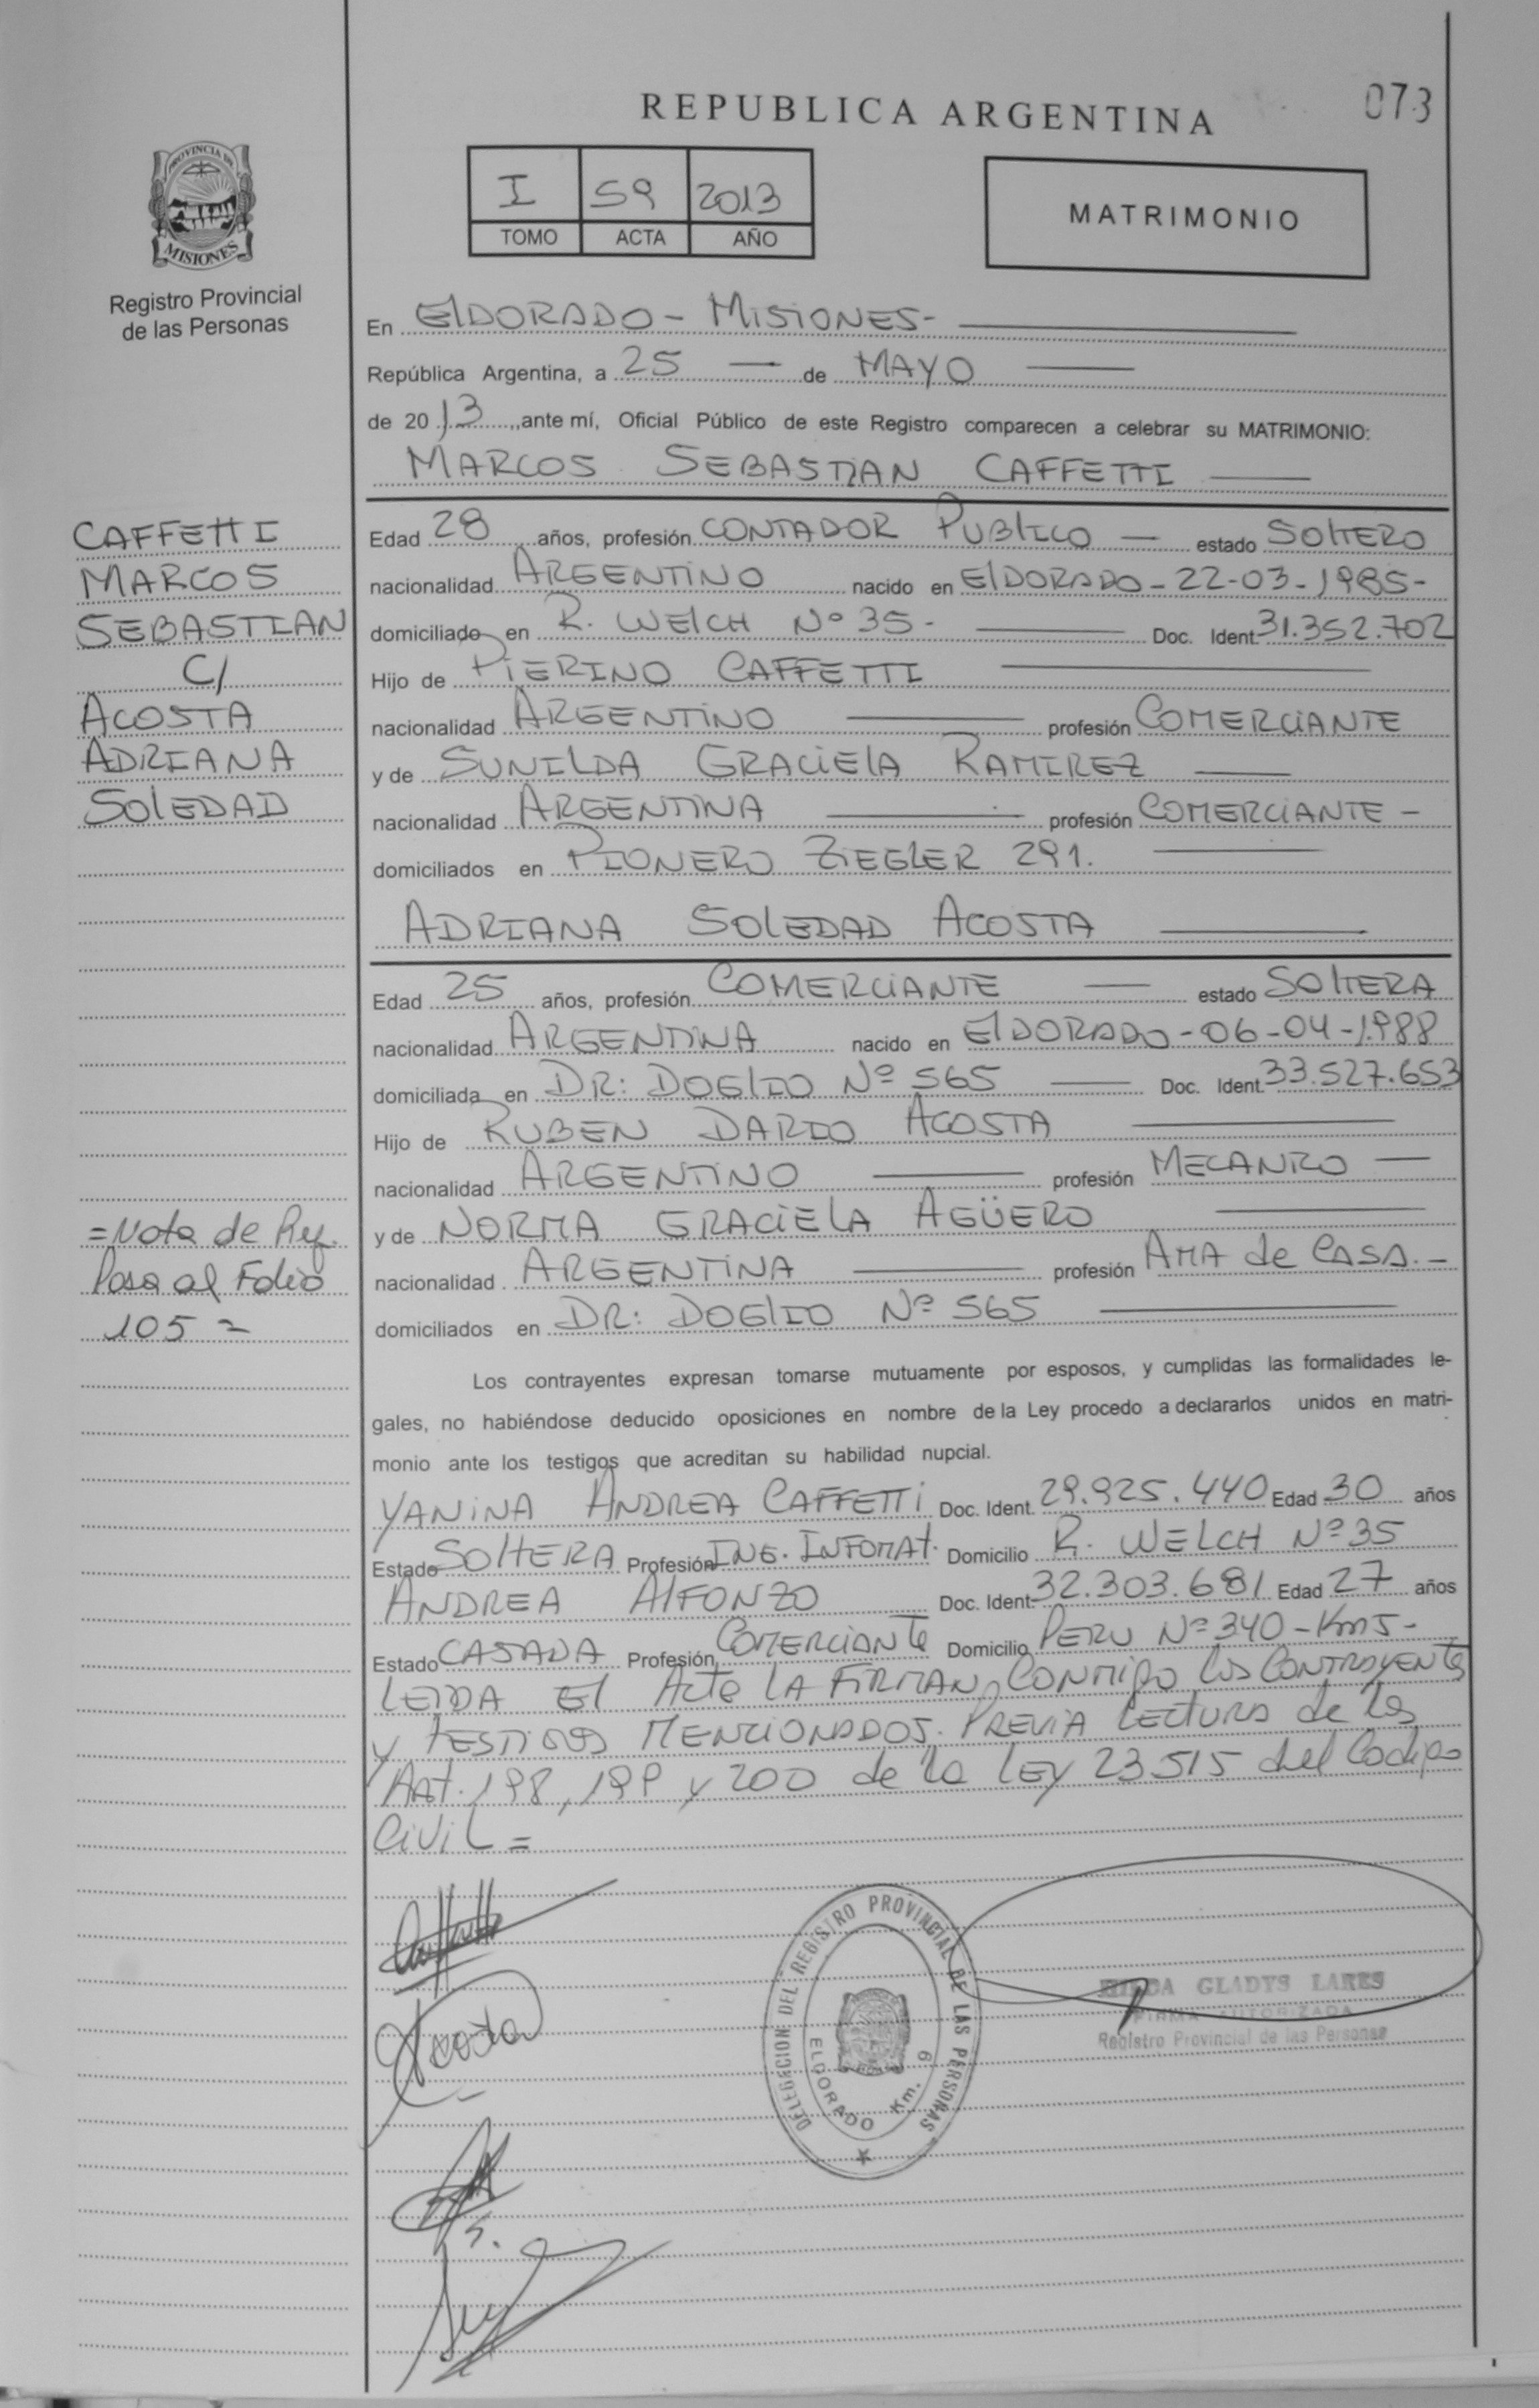 REPUBLICA ARGENTINA
073
PROVINCIA DE
MISIONES
Registro Provincial
de las Personas
I 59 2013
TOMO ACTA AÑO
MATRIMONIO
En ElDORADO - MISIONES-
República Argentina, a 25 — de MAYO
de 2013, ante mí, Oficial Público de este Registro comparecen a celebrar su MATRIMONIO:
MARCOS SEBASTIAN CAFFETTI
CAFFETTI
MARCOS
SEBASTIAN
C/
ACOSTA
ADRIANA
SOlEDAD
Edad 28 años, profesión CONTADOR PUBLICO — estado SOlTERO
nacionalidad ARGENTINO nacido en ElDORADO - 22-03-1985-
domiciliado en R. WElCH Nº 35- Doc. Ident. 31.352.702
Hijo de PIERINO CAFFETTI
nacionalidad ARGENTINO profesión COMERCIANTE
y de SUNILDA GRACIElA RAMIREZ
nacionalidad ARGENTINA profesión COMERCIANTE -
domiciliados en PIONERO ZIEGLER 291.
ADRIANA SOlEDAD ACOSTA
Edad 25 años, profesión COMERCIANTE — estado SOlTERA
nacionalidad ARGENTINA nacido en ElDORADO - 06-04-1988
domiciliada en DR: DOGlIO Nº 565 Doc. Ident. 33.527.653
Hijo de RUBEN DARIO ACOSTA
nacionalidad ARGENTINO profesión MECANICO —
y de NORMA GRACIElA AGÜERO
nacionalidad ARGENTINA profesión AMA de CASA.-
domiciliados en DR: DOGlIO Nº 565
=Nota de Ref.
Pasa al Folio
105=
Los contrayentes expresan tomarse mutuamente por esposos, y cumplidas las formalidades le-
gales, no habiéndose deducido oposiciones en nombre de la Ley procedo a declararlos unidos en matri-
monio ante los testigos que acreditan su habilidad nupcial.
YANINA ANDREA CAFFETTI Doc. Ident. 29.925.440 Edad 30 años
Estado SOlTERA Profesión ING. INFOMAT. Domicilio R. WELCH Nº 35
ANDREA AlFONZO Doc. Ident. 32.303.681 Edad 27 años
Estado CASADA Profesión COMERCIANTE Domicilio PERU Nº 340 - Km5-
LEIDA El Acta LA FIRMAN, CONMIGO los CONTRAYENTES
y TESTIGOS MENCIONADOS. PREVIA LECTURA de los
Art. 198, 199 y 200 de la LEY 23.515 del Codigo
CIVIL =
Acosta
DELEGACION DEL REGISTRO PROVINCIAL DE LAS PERSONAS
ELDORADO Km. 9
GLADYS LARES
FIRMA AUTORIZADA
Registro Provincial de las Personas